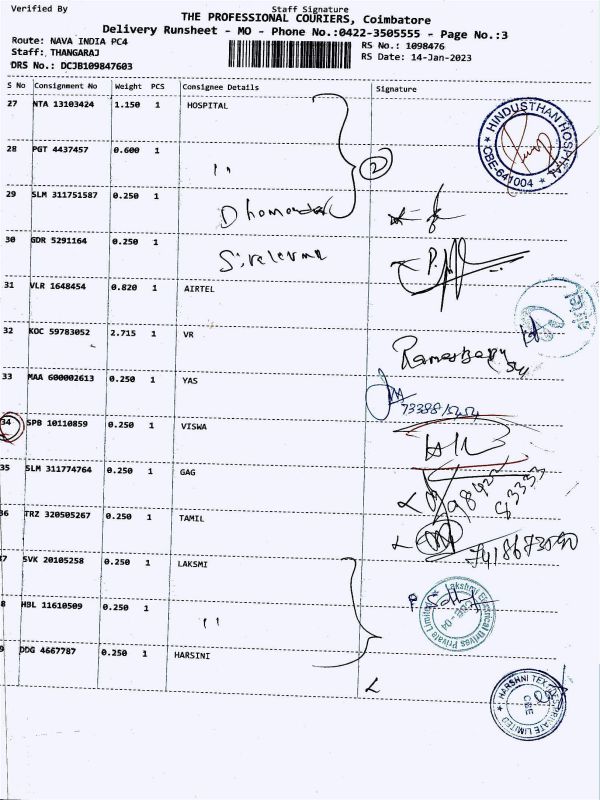 Verified By
Staff Signature
THE PROFESSIONAL COURIERS, Coimbatore
Delivery Runsheet - MO - Phone No.:0422-3505555 - Page No.:3
Route: NAVA INDIA PC4
RS No.: 1098476
Staff: THANGARAJ
RS Date: 14-Jan-2023
DRS No.: DCJB109847603
S No Consignment No Weight PCS Consignee Details Signature
27 NTA 13103424 1.150 1 HOSPITAL
HINDUSTHAN HOSPITAL
CBE-641004
28 PGT 4437457 0.600 1 ,,
2
29 SLM 311751587 0.250 1
30 GDR 5291164 0.250 1
31 VLR 1648454 0.820 1 AIRTEL
32 KOC 59783052 2.715 1 VR
33 MAA 600002613 0.250 1 YAS
34 SPB 10110859 0.250 1 VISWA
35 SLM 311774764 0.250 1 GAG
36 TRZ 320505267 0.250 1 TAMIL
7 SVK 20105258 0.250 1 LAKSMI
8 HBL 11610509 0.250 1 ,,
Lakshmi Electrical Drives Private Limited
9 DDG 4667787 0.250 1 HARSINI
HARSHNI TEXTILES PRIVATE LIMITED
CBE